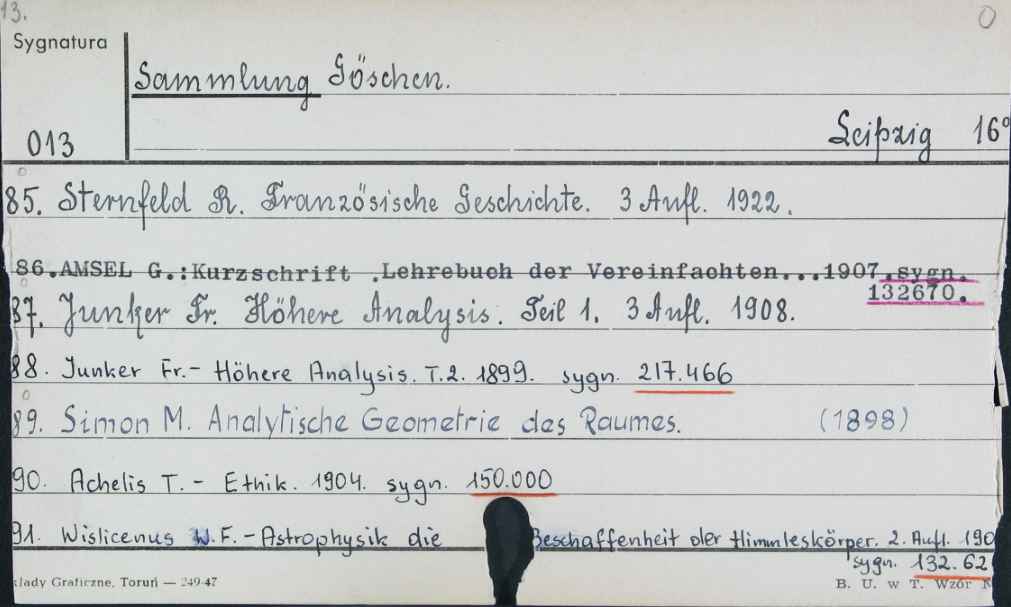 13. 0
Sygnatura
Sammlung Göschen.
013 Leipzig 16º
85. Sternfeld R. Französische Geschichte. 3 Aufl. 1922.
86.AMSEL G.:Kurzschrift .Lehrebuch der Vereinfachten...1907.sygn.
132670.
87. Junker Fr. Höhere Analysis. Teil 1. 3 Aufl. 1908.
88. Junker Fr.- Höhere Analysis. T.2. 1899. sygn. 217.466
89. Simon M. Analytische Geometrie des Raumes. (1898)
90. Achelis T. - Ethik. 1904. sygn. 150.000
91. Wislicenus W.F. - Astrophysik die Beschaffenheit der Himmleskörper. 2. Aufl. 190
sygn. 132.62
kłady Graficzne, Toruń — 249-47 B. U. w T. Wzór